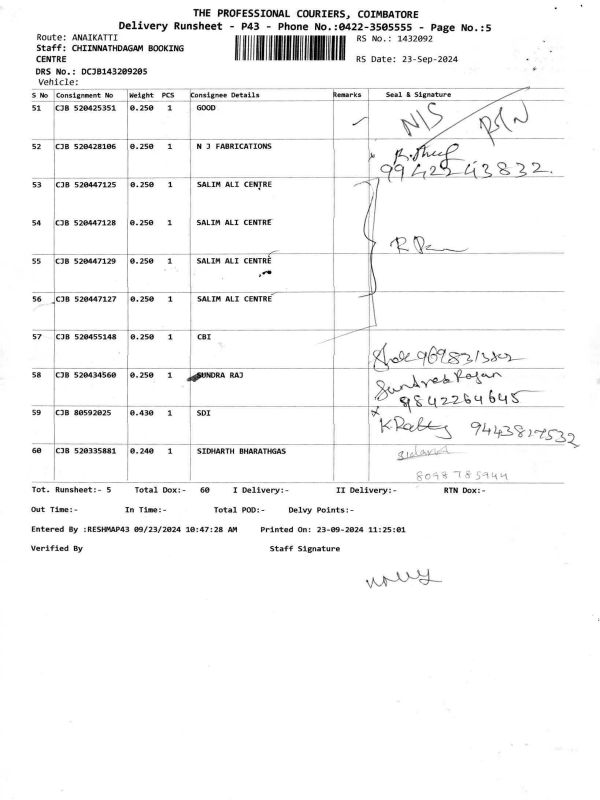 THE PROFESSIONAL COURIERS, COIMBATORE
Delivery Runsheet - P43 - Phone No.:0422-3505555 - Page No.:5
Route: ANAIKATTI
RS No.: 1432092
Staff: CHIINNATHDAGAM BOOKING
CENTRE
RS Date: 23-Sep-2024
DRS No.: DCJB143209205
Vehicle:
S No Consignment No Weight PCS Consignee Details Remarks Seal & Signature
51 CJB 520425351 0.250 1 GOOD N/S RTN
52 CJB 520428106 0.250 1 N J FABRICATIONS
9942243832.
53 CJB 520447125 0.250 1 SALIM ALI CENTRE
54 CJB 520447128 0.250 1 SALIM ALI CENTRE
55 CJB 520447129 0.250 1 SALIM ALI CENTRE
56 CJB 520447127 0.250 1 SALIM ALI CENTRE
57 CJB 520455148 0.250 1 CBI
58 CJB 520434560 0.250 1 SUNDRA RAJ
9842264645
59 CJB 80592025 0.430 1 SDI 9443827532
60 CJB 520335881 0.240 1 SIDHARTH BHARATHGAS
8098785944
Tot. Runsheet:- 5 Total Dox:- 60 I Delivery:- II Delivery:- RTN Dox:-
Out Time:- In Time:- Total POD:- Delvy Points:-
Entered By :RESHMAP43 09/23/2024 10:47:28 AM Printed On: 23-09-2024 11:25:01
Verified By Staff Signature